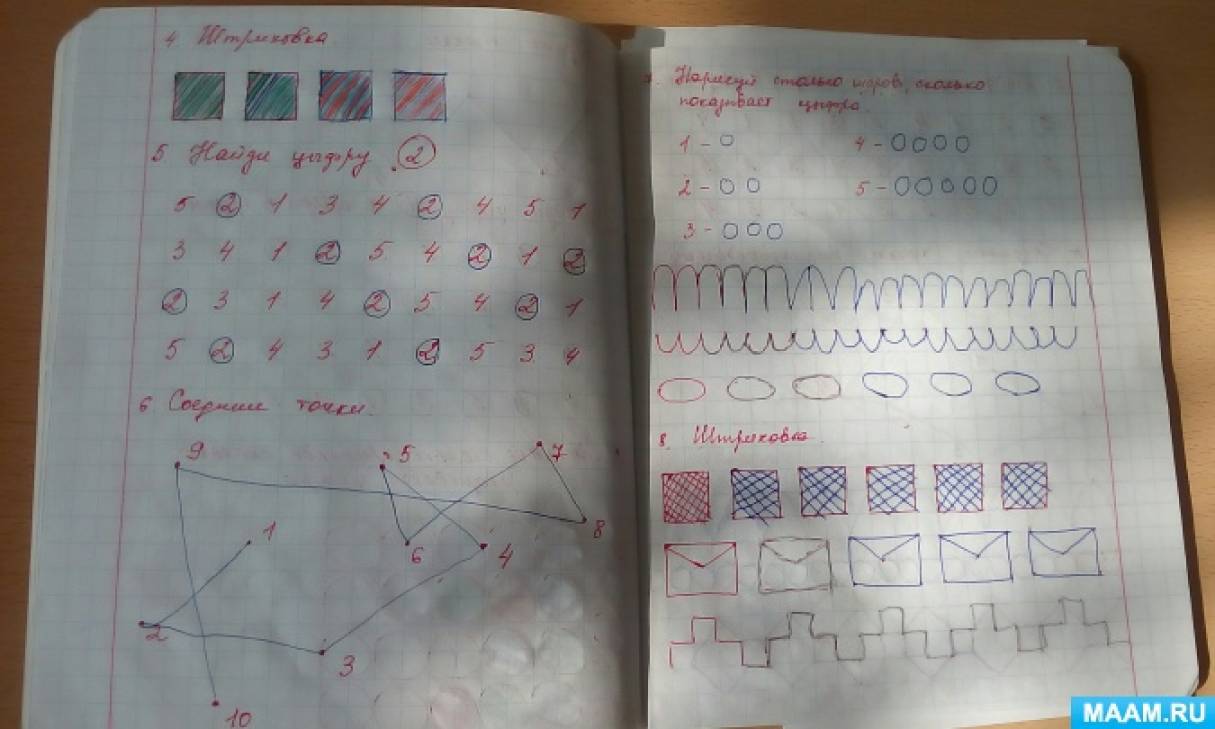 4 Штриховка
5 Найди цыфру 2
5 2 1 3 4 2 4 5 1
3 4 1 2 5 4 2 1 2
2 3 1 4 2 5 4 2 1
5 2 4 3 1 2 5 3 4
6 Соедини точки.
9 5 7
1 6 4 8
2 3
10
Нарисуй столько шаров, сколько
показывает цыфра.
1 - 4 -
2 - 5 -
3 -
8. Штриховка.
MAAM.RU